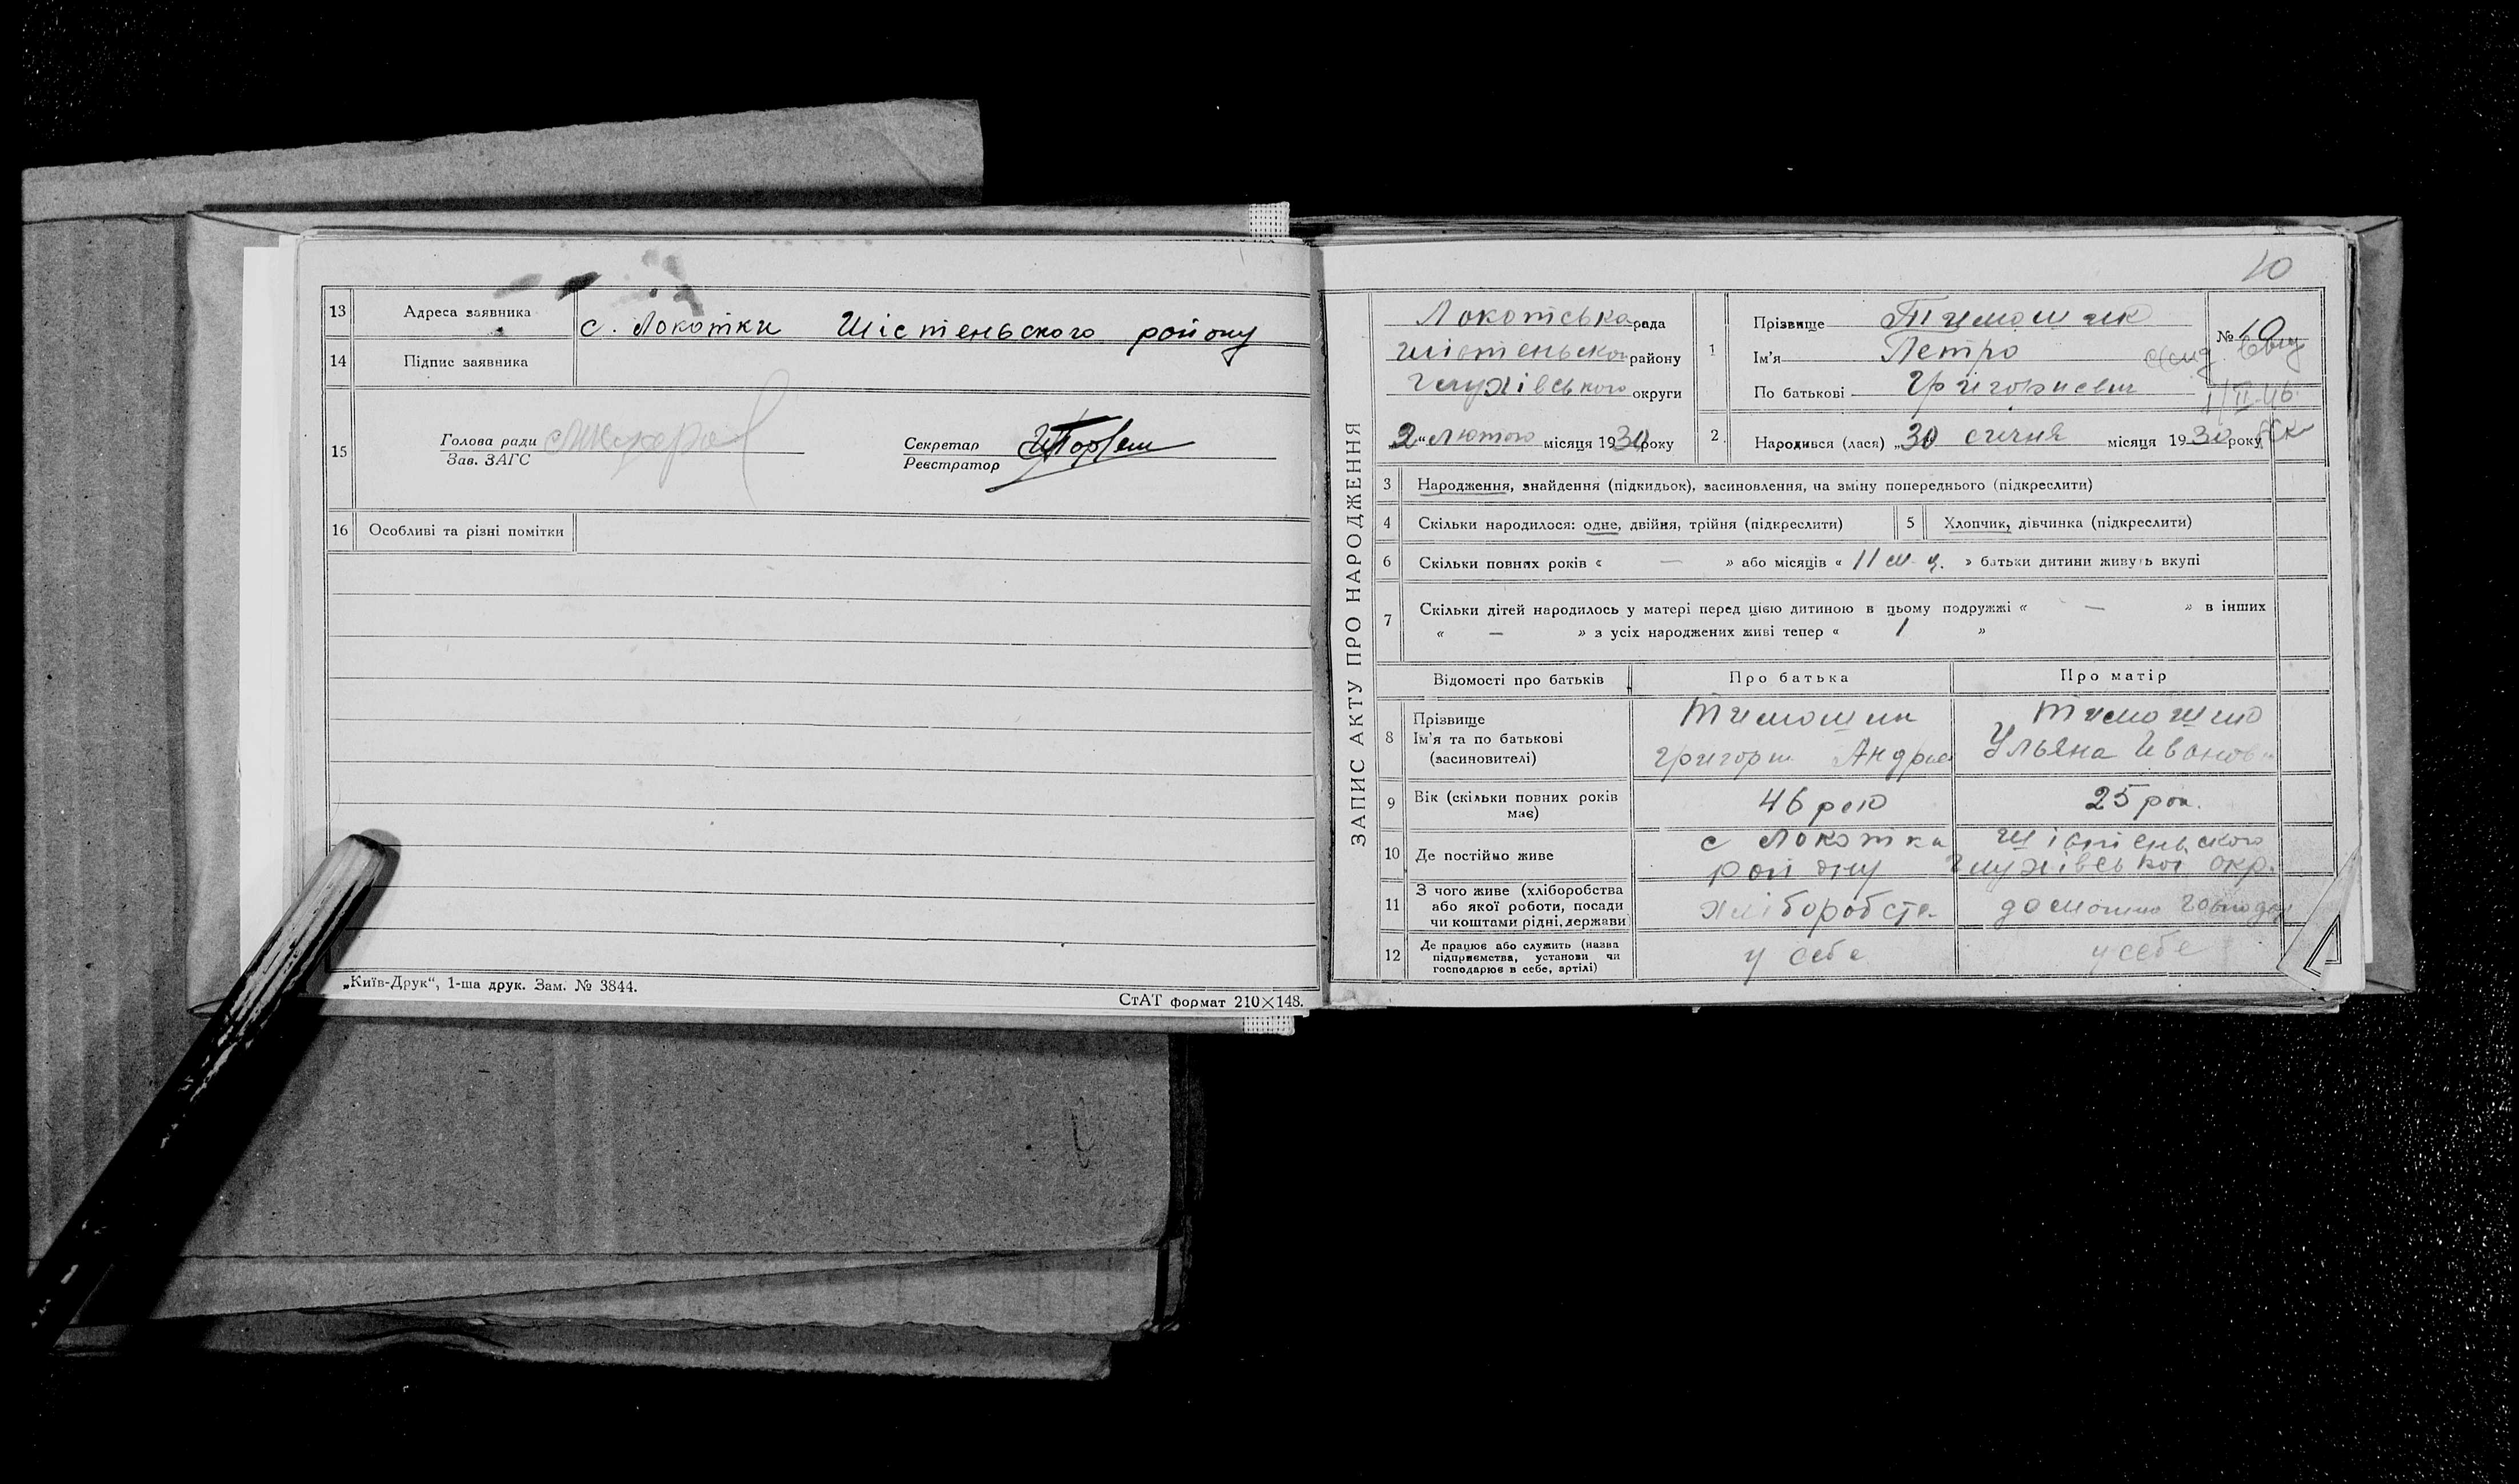 13 Адреса заявника с. Локотки Шістеньского району
14 Підпис заявника
15 Голова ради Зав. ЗАГС Секретар Реєстратор
16 Особливі та різні помітки
„Київ-Друк“, 1-ша друк. Зам. № 3844.
СтАТ формат 210×148.
10
ЗАПИС АКТУ ПРО НАРОДЖЕННЯ
Локотська рада
Шістеньског району
Глухівського округи
„2“ Лютого місяця 1930 року
1 Прізвище
Ім'я Петро
По батькові Григориевич
№ 10
2. Народився (лася) „30 січня місяця 1930 року
3 Народження, знайдення (підкидьок), засиновлення, на зміну попереднього (підкреслити)
4 Скільки народилося: одне, двійня, трійня (підкреслити) 5 Хлопчик, дівчинка (підкреслити)
6 Скільки повних років « — » або місяців « 11 м-ц. » батьки дитини живуть вкупі
7 Скільки дітей народилось у матері перед цією дитиною в цьому подружжі « — » в інших
« — » з усіх народжених живі тепер « 1 »
Відомості про батьків Про батька Про матір
8 Прізвище
Ім'я та по батькові Андрие Ульяна Иванов
(засновителі)
9 Вік (скільки повних років має) 46 25 рок.
10 Де постійно живе с Локотка Шістеньского
району Глухівської окр.
11 З чого живе (хліборобства або якої роботи, посади чи коштами рідні, держави) хліборобств
12 Де працює або служить (назва підприємства, установи чи господарює в себе, артілі) у себе у себе